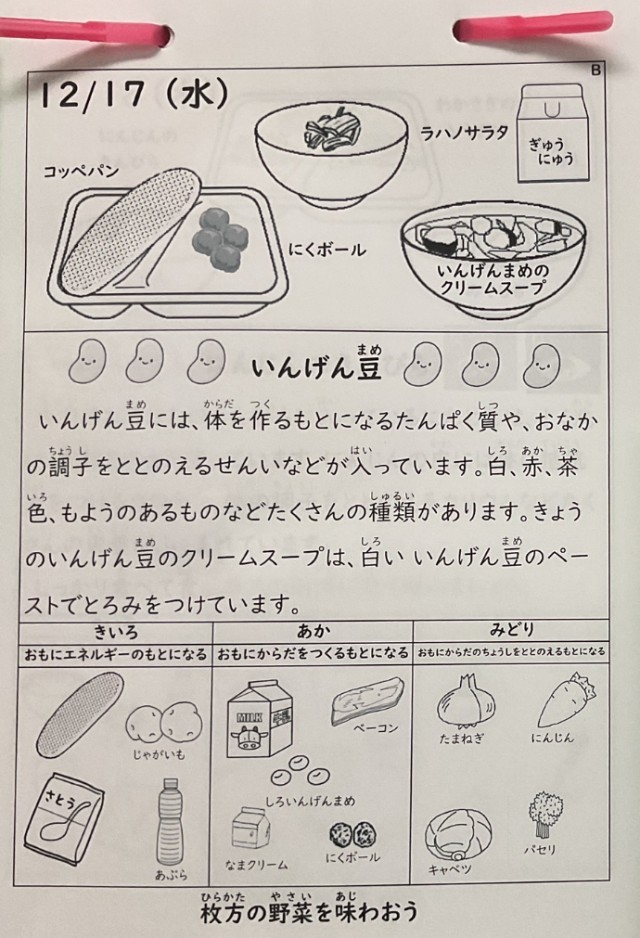 B
12/17（水）
コッペパン
ラハノサラタ
ぎゅう
にゅう
にくボール
いんげんまめの
クリームスープ
いんげん豆
いんげん豆には、体を作るもとになるたんぱく質や、おなか
の調子をととのえるせんいなどが入っています。白、赤、茶
色、もようのあるものなどたくさんの種類があります。きょう
のいんげん豆のクリームスープは、白い いんげん豆のペー
ストでとろみをつけています。
きいろ
おもにエネルギーのもとになる
じゃがいも
さとう
あぶら
あか
おもにからだをつくるもとになる
MILK
ベーコン
しろいんげんまめ
なまクリーム
にくボール
みどり
おもにからだのちょうしをととのえるもとになる
たまねぎ
にんじん
キャベツ
パセリ
枚方の野菜を味わおう